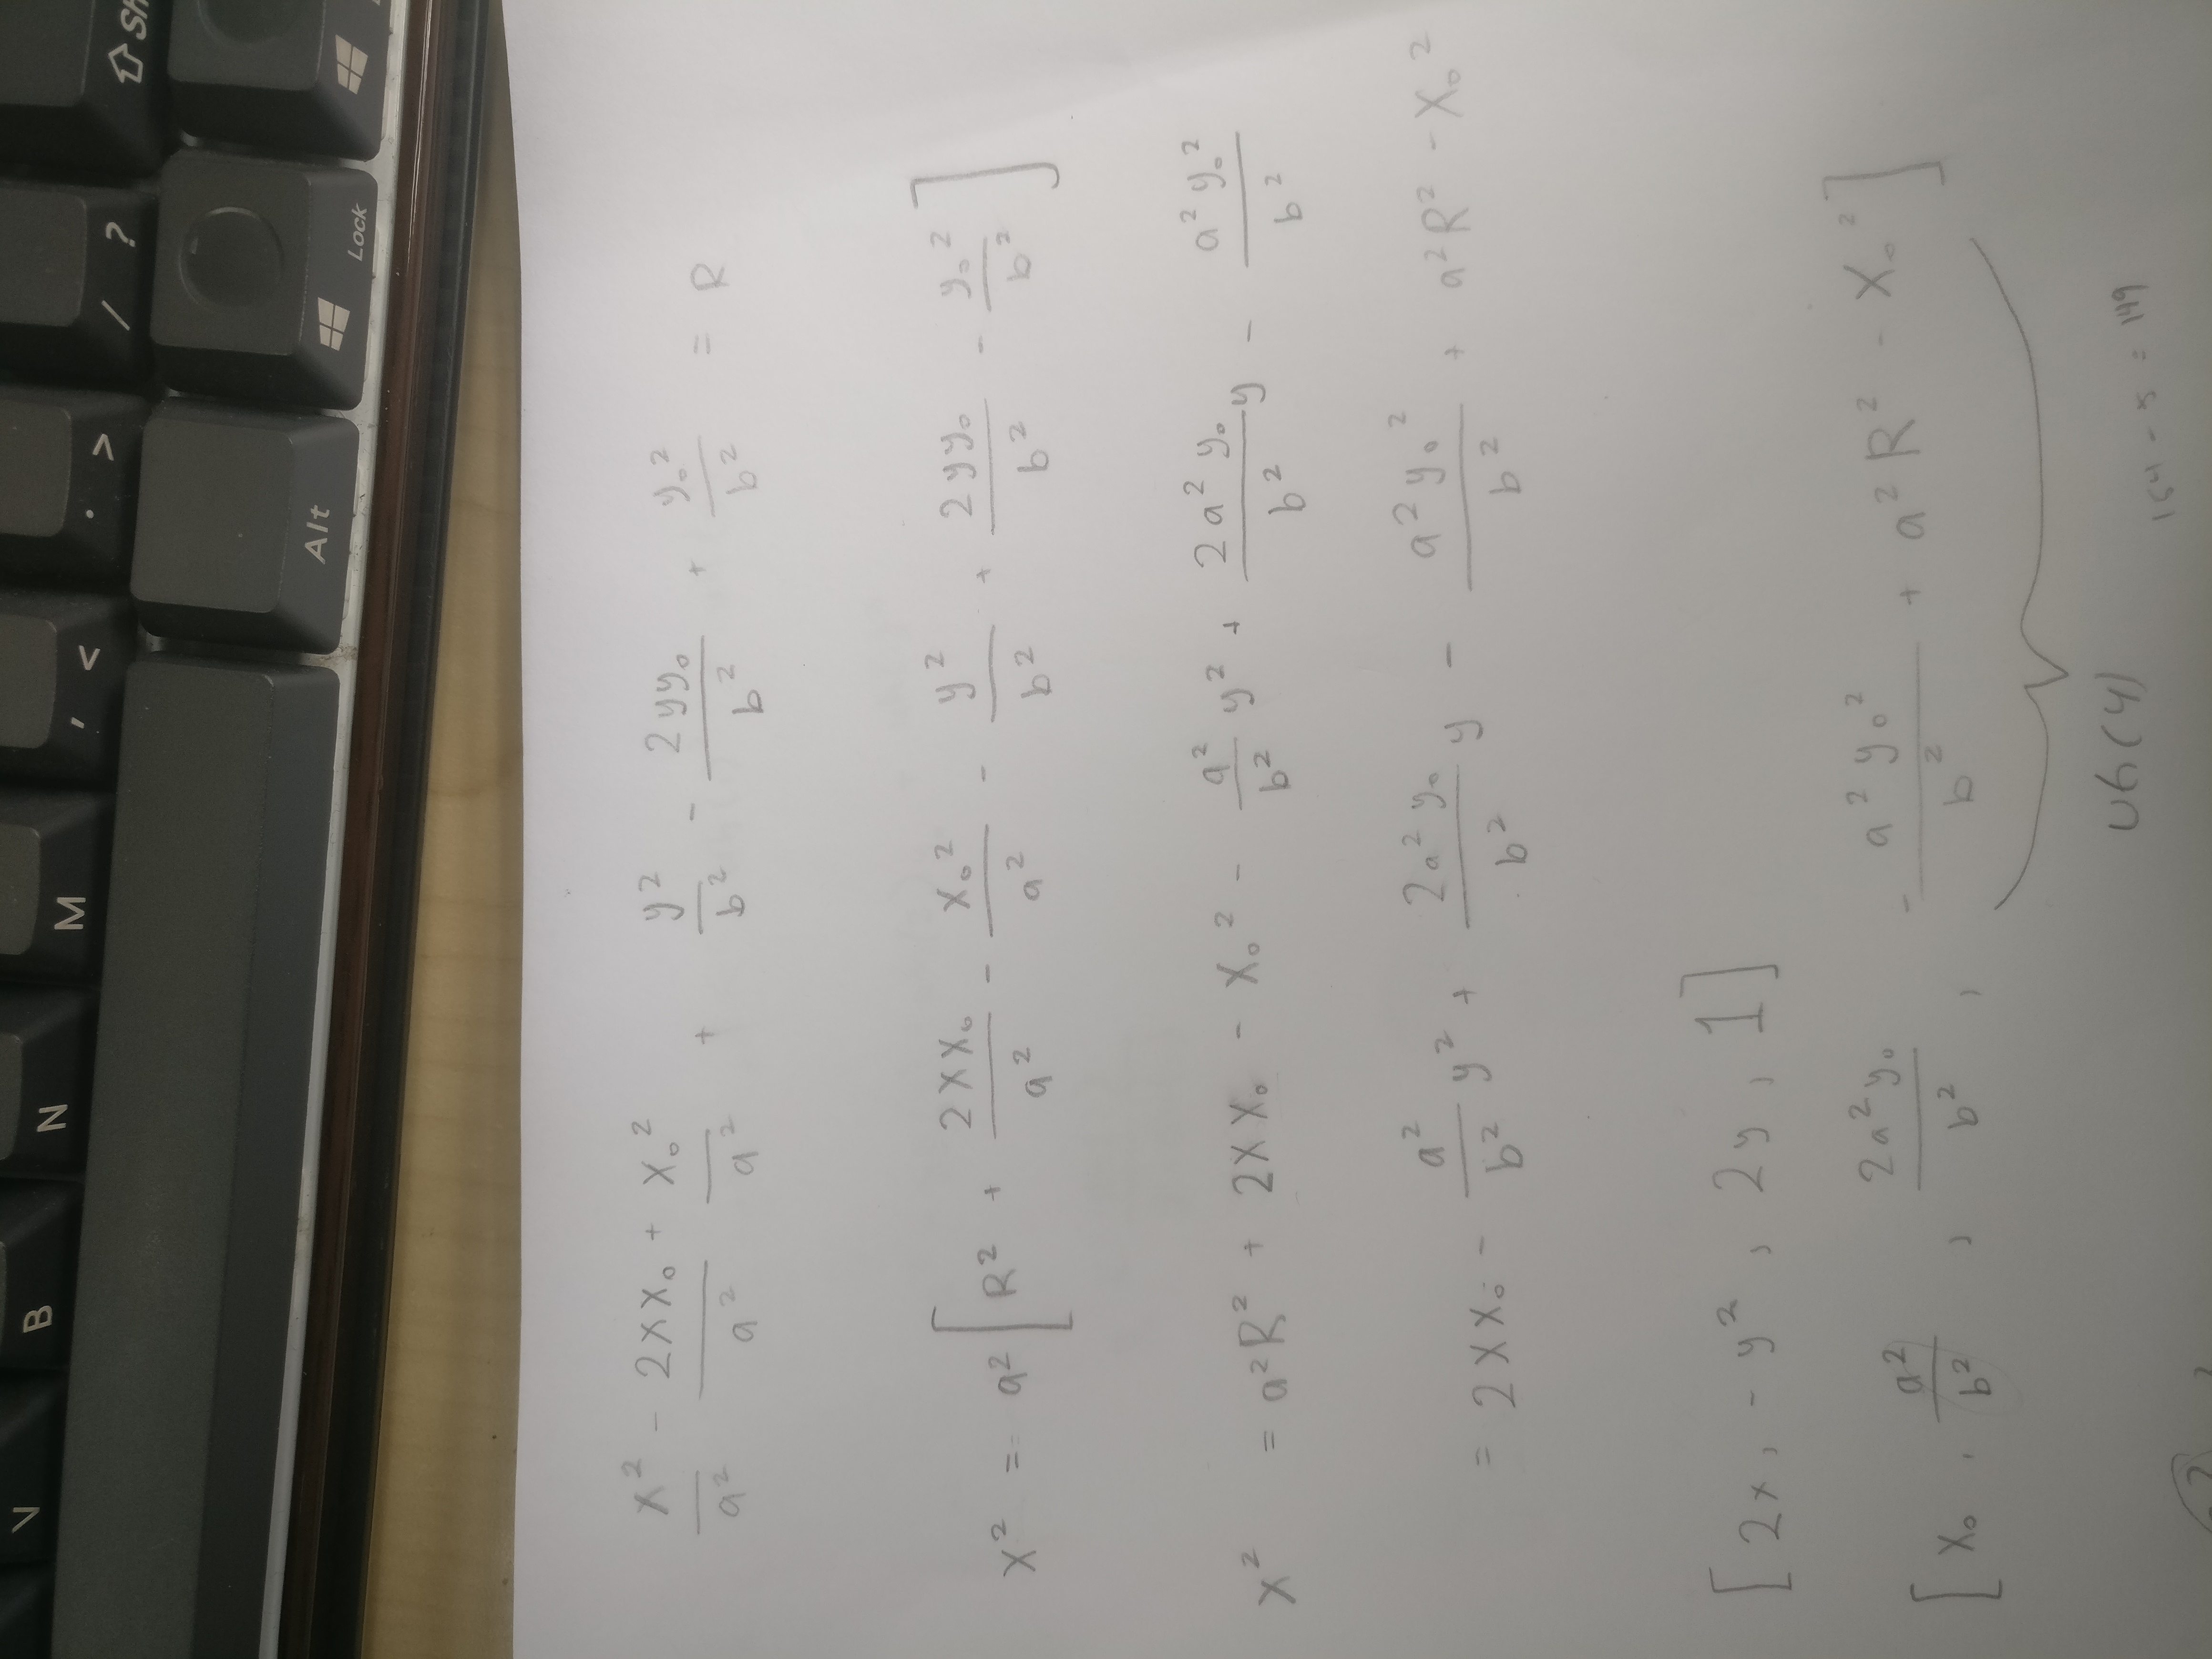 V B N M , < . > / ? ⇧ Sh
Alt Lock
x²/a² - 2xx₀/a² + x₀²/a² + y²/b² - 2yy₀/b² + y₀²/b² = R
x² = a² [ R² + 2xx₀/a² - x₀²/a² - y²/b² + 2yy₀/b² - y₀²/b² ]
x² = a²R² + 2xx₀ - x₀² - a²/b² y² + 2a²y₀/b² y - a²y₀²/b²
= 2xx₀ - a²/b² y² + 2a²y₀/b² y - a²y₀²/b² + a²R² - x₀²
[ 2x, -y², 2y, 1 ]
[ x₀, a²/b², 2a²y₀/b², -a²y₀²/b² + a²R² - x₀² ]
154 - 5 = 149